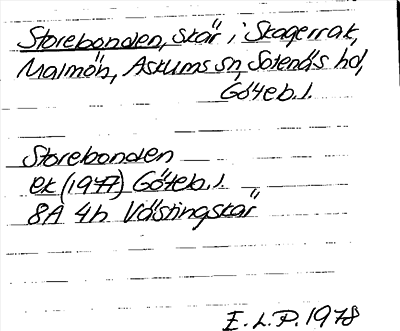 Storebonden, skär i Skagerrak,
Malmön, Askums sn, Sotenäs hd,
Göteb. l.
Storebonden
ek (1977) Göteb. l.
8A 4h Västingskär
E. L. P. 1978